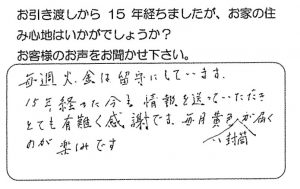 お引き渡しから 15 年経ちましたが、お家の住
み心地はいかがでしょうか？
お客様のお声をお聞かせ下さい。
毎週火、金は留守にしています。
15年経った今も情報を送っていただき
とても有難く感謝です。毎月黄色が届く
のが楽しみです
い封筒